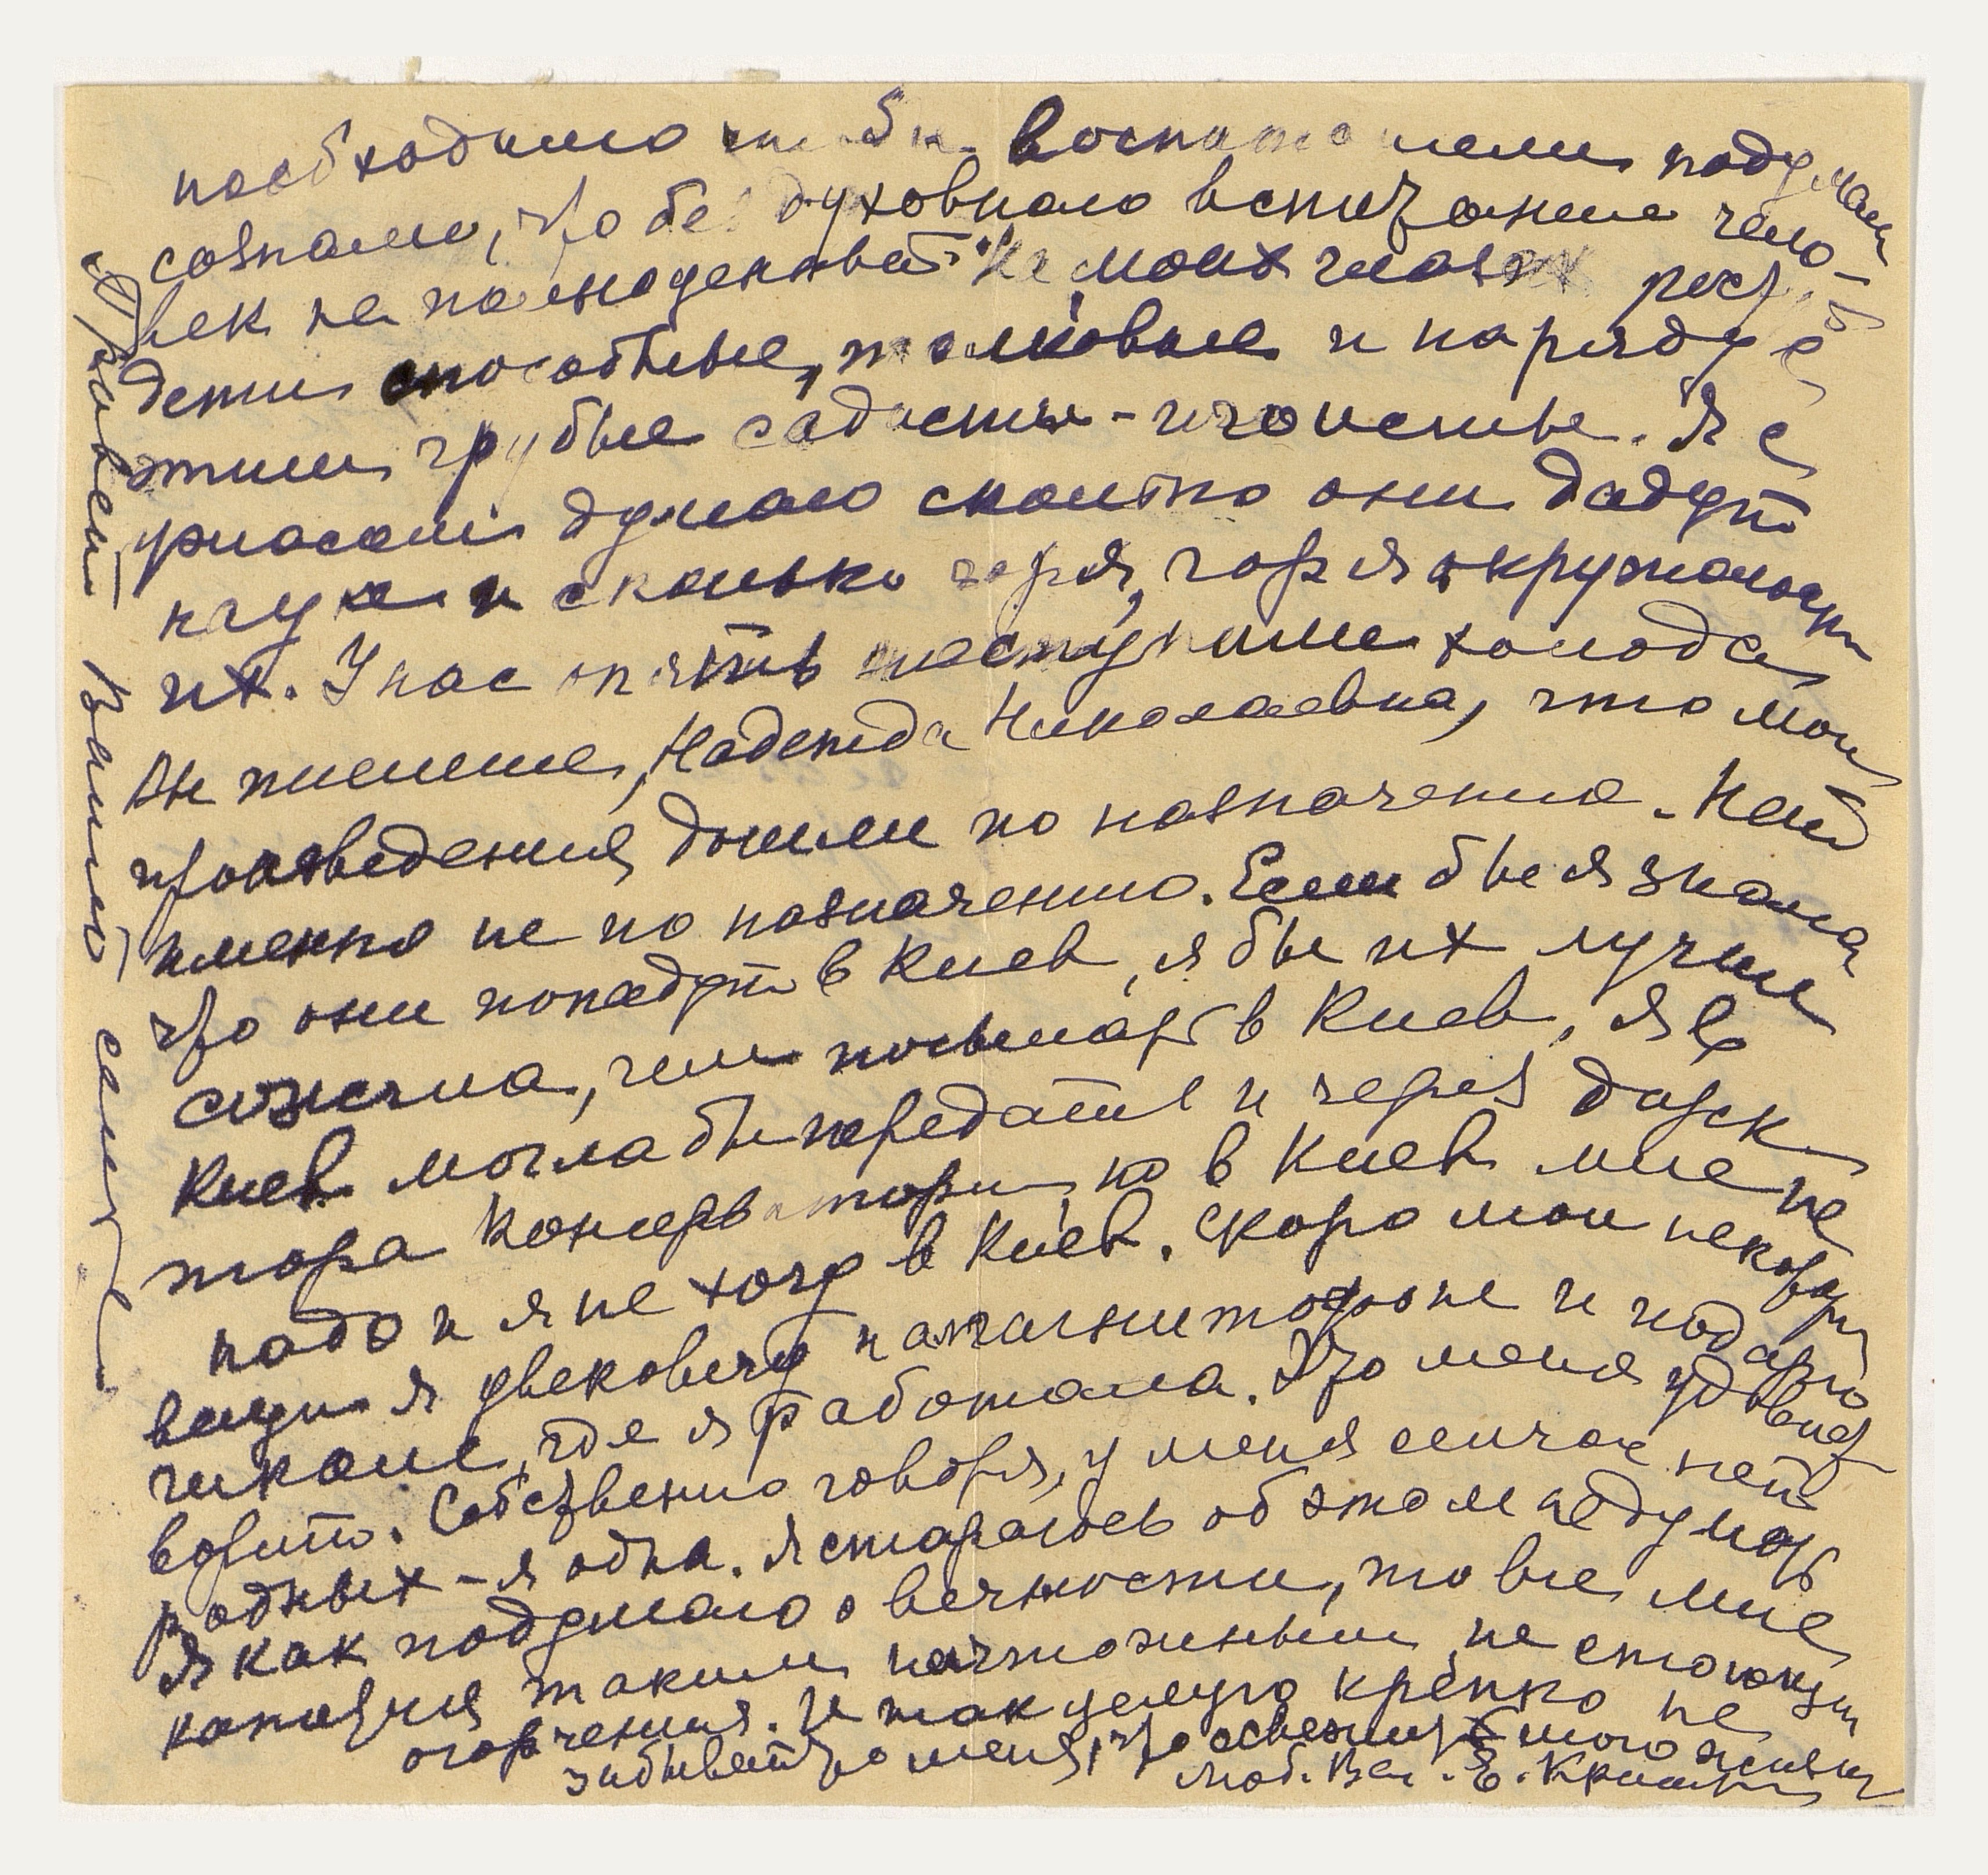 необходимо чтобы воспитатели подумали
сознали, что без духовного воспитания чело-
век не полноценный. На моих глазах растут
дети способные, толковые и наряду с
этим грубые садисты-эгоисты. Я с
ужасом думаю сколько они дадут
науке и сколько горя, горя окружающим
их. У нас опять наступили холода
Вы пишете, Надежда Николаевна, что мои
произведения дошли по назначению. Нет
именно не по назначению. Если бы я знала
что они попадут в Киев, я бы их лучше
сожгла, чем посылать в Киев, Я в
Киев могла бы передать и через дирек
тора консерватории, но в Киев мне не
надо и я не хочу в Киев. Скоро мои некоторые
вещи я увековечу на магнитофоне и подарю
школе, где я работала. Это меня удовлет
ворит. Собственно говоря, у меня сейчас нет
родных - я одна. Я стараюсь об этом не думать
Я как подумаю о вечности, то все мне
кажется таким ничтожным, не стоющим
огорчения. И так целую крепко не
забывайте меня, это освежит мою жизнь
Люб. Вас. Е. Крит
Привет Вашей семье